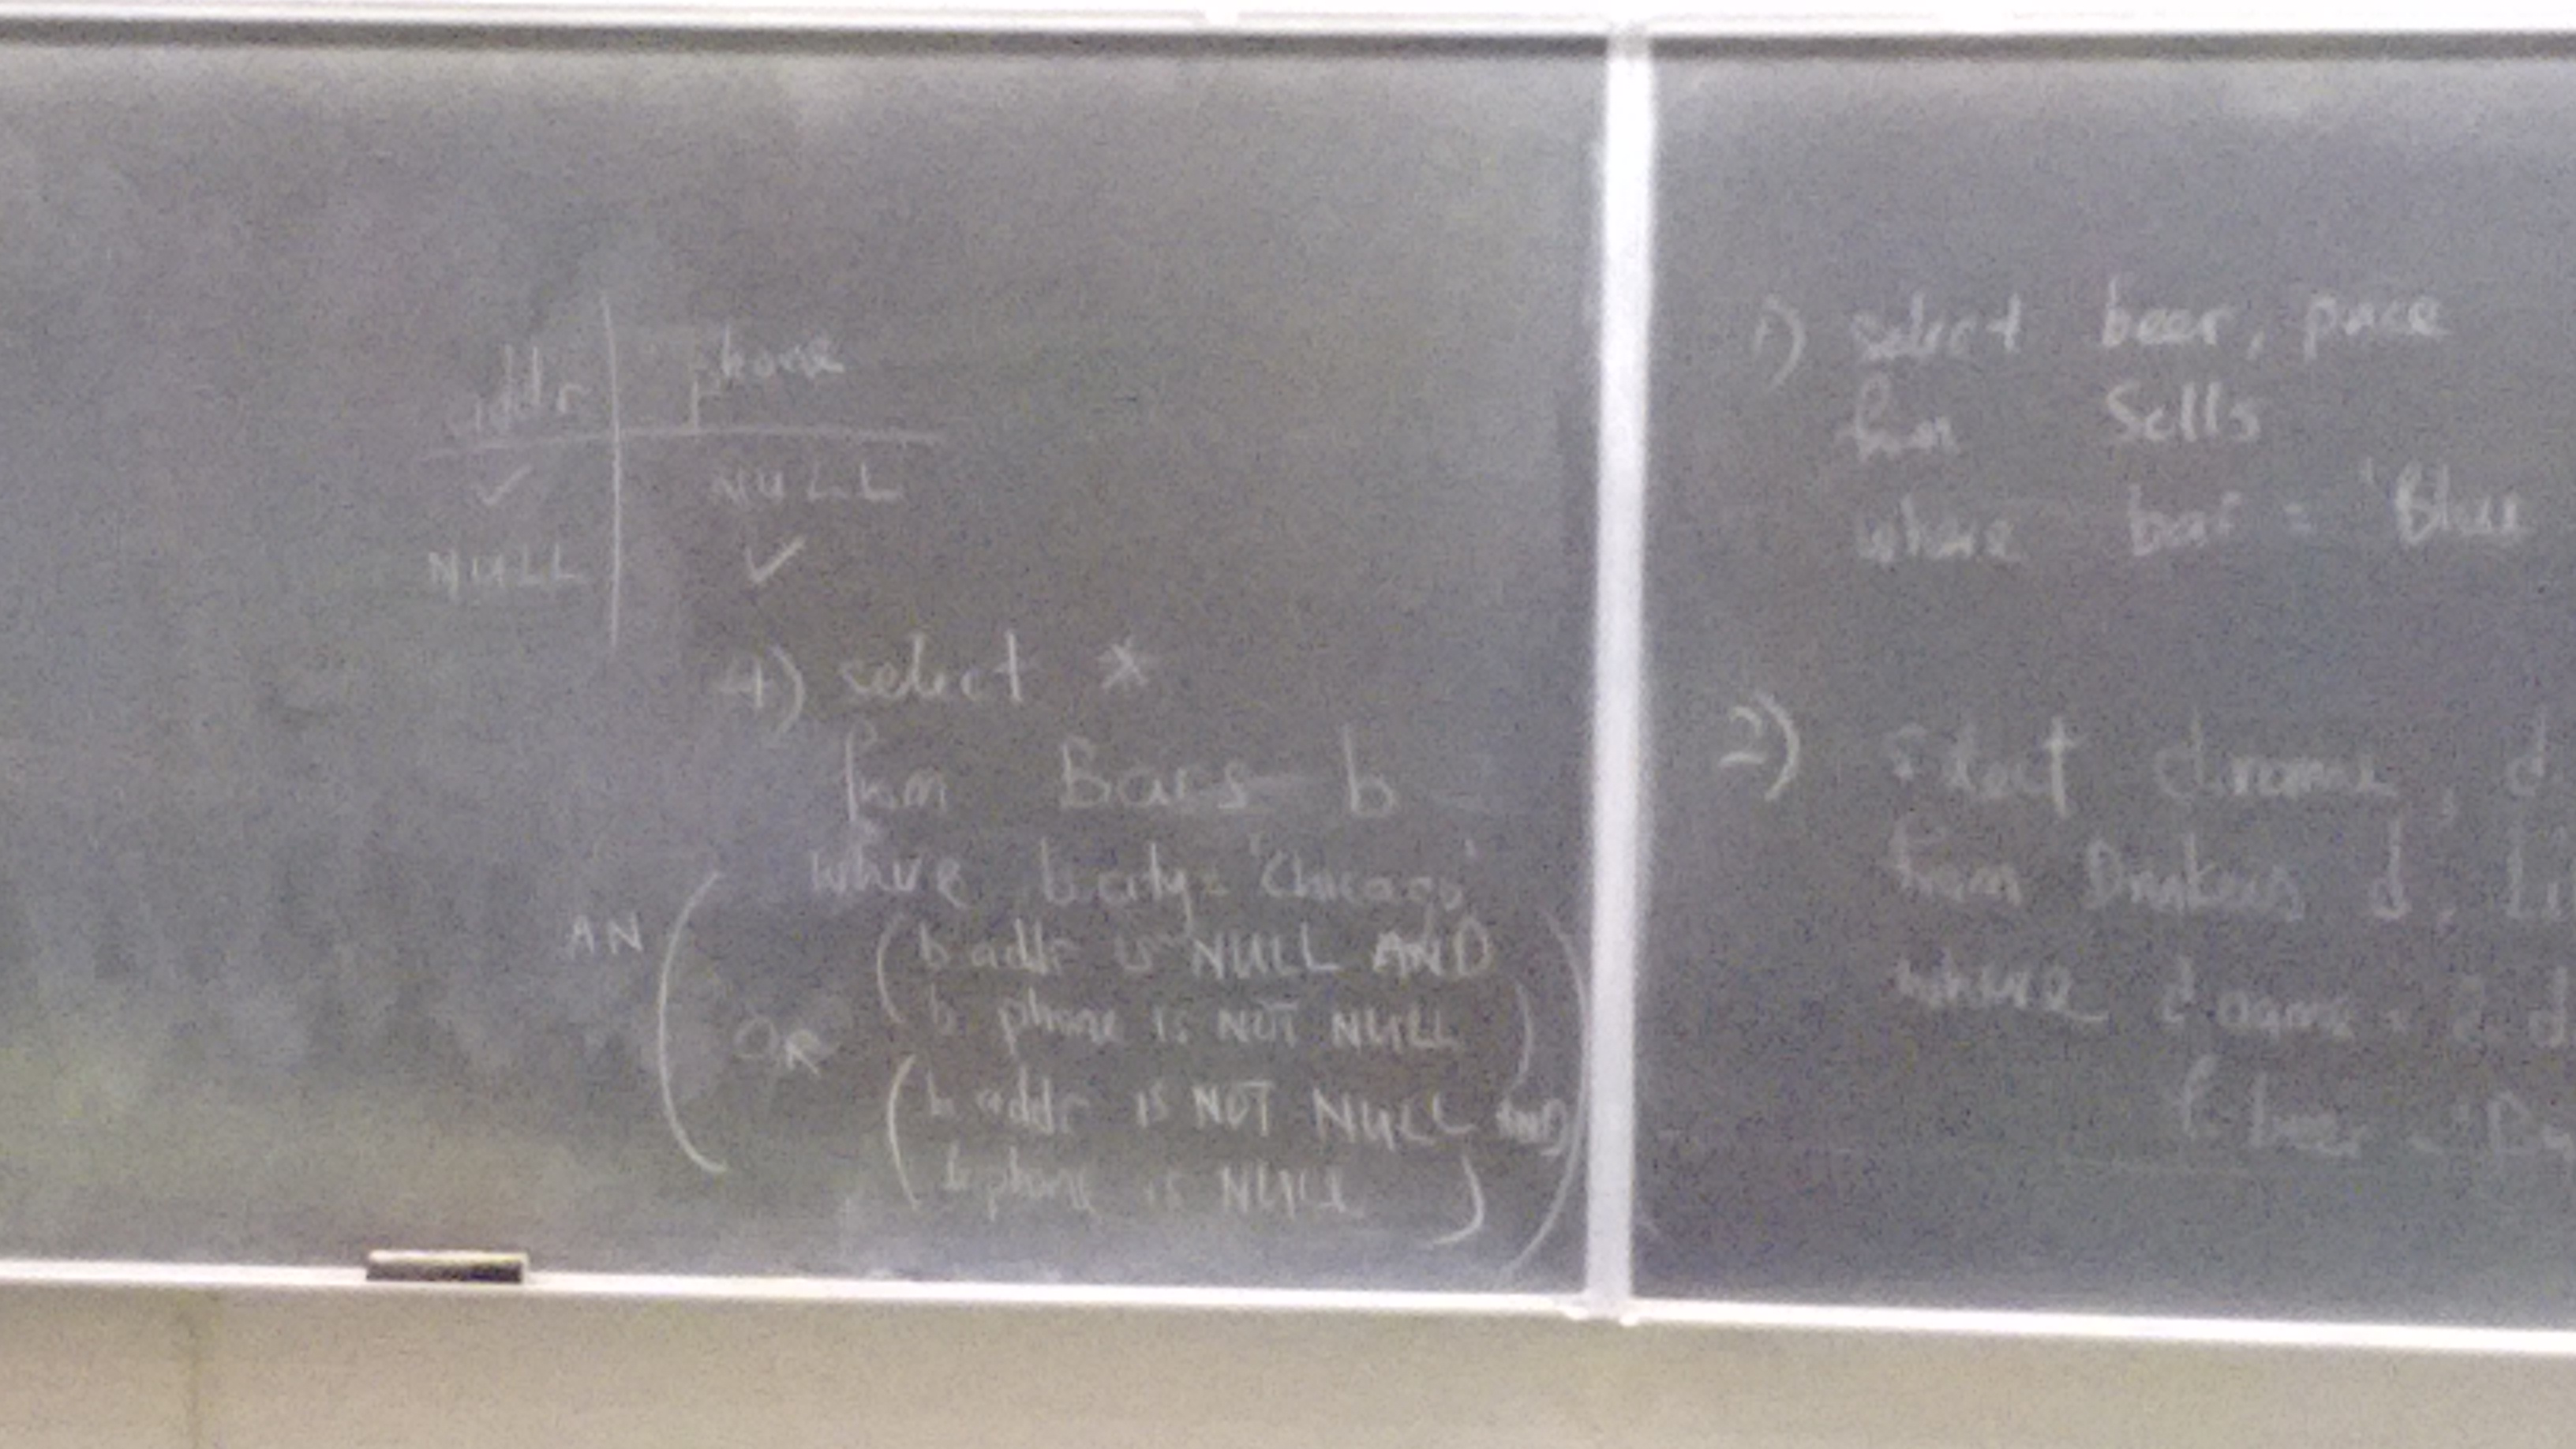 addr phone
✓ NULL
NULL ✓
4) select *
from Bars b
where b.city = 'Chicago'
AN
(b.addr is NULL AND
b.phone is NOT NULL)
OR
(b.addr is NOT NULL AND
b.phone is NULL)
1) select beer, price
from Sells
where bar = 'Blue
2) select d.name, d
from Drinkers d, Li
where d.name = l.d
l.beer =